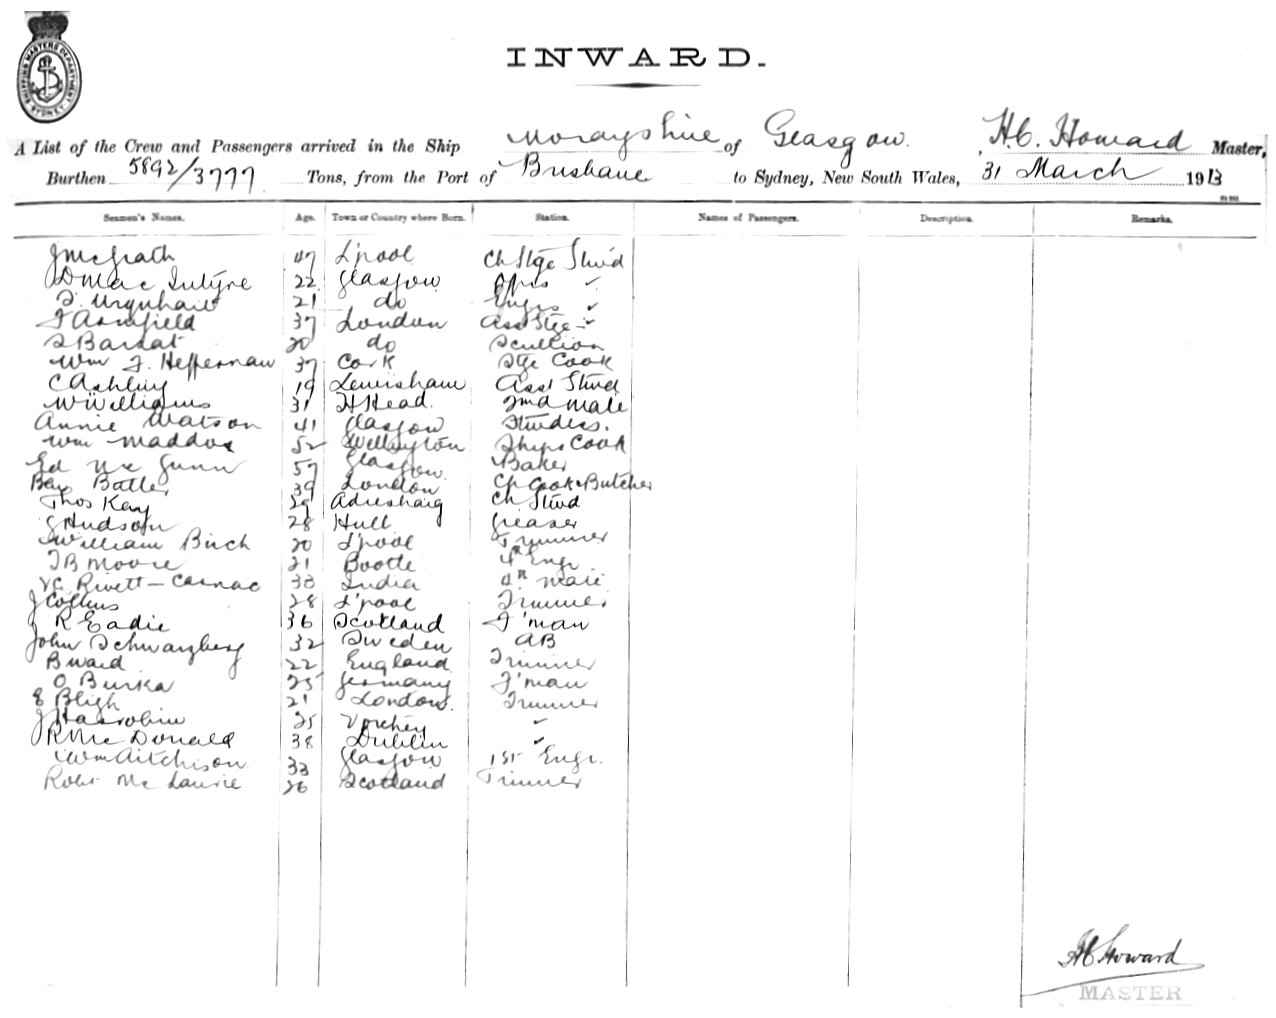 SHIPPING MASTERS DEPARTMENT SYDNEY
INWARD.
A List of the Crew and Passengers arrived in the Ship Morayshire of Glasgow. , H.C. Howard Master,
Burthen 5892/3777 Tons, from the Port of Brisbane to Sydney, New South Wales, 31 March 1913
Seamen's Names. Age. Town or Country where Born. Station. Names of Passengers. Description. Remarks.
J McGrath 47 L'pool Ch Stge Stwd
D Mac Intyre 22 Glasgow ✓
T. Urquhart 21 do Engrs ✓
F Armfield 37 London Asst Stge ✓
S Barsat 20 do Scullion
Wm J. Heffernan 37 Cork Stge Cook
C Ashley 19 Lewisham Asst Stwd
W Williams 31 H Head. 2nd Mate
Annie Watson 41 Glasgow Stwdess.
Wm Maddox 52 Wellington Ships Cook
Ed Mc Gunn 57 Glasgow Baker
Ben Batler 39 London Ch Cook & Butcher
Thos Kay 29 Adrishaig Ch Stwd
G Hudson 28 Hull Greaser
William Birch 20 L'pool Trimmer
T B Moore 21 Bootle 4th Engr
Rivett-Carnac 33 India 4th Mate
J Collins 28 L'pool Trimmer
R Eadie 36 Scotland F'man
John Schwarzberg 32 Sweden AB
B Ward 22 England Trimmer
O Burka 25 Germany F'man
E Bligh 21 London. Trimmer
J 25 ✓
R Mc Donald 38 Dublin ✓
Wm Aitchison 33 Glasgow 1st Engr.
Robt Mc Laurie 26 Scotland Trimmer
HC Howard
MASTER